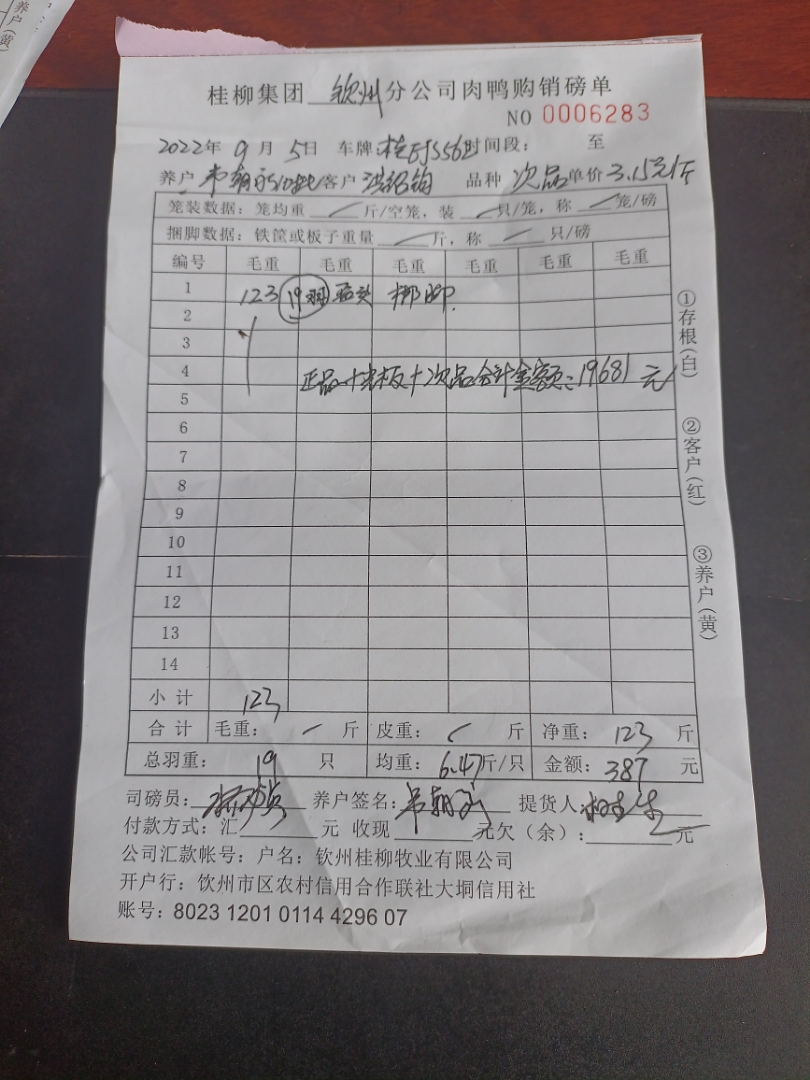 桂柳集团 钦州 分公司肉鸭购销磅单
NO 0006283
2022年 9月 5日 车牌: 时间段: 至
养户 客户 品种 次品 单价 3.15元/斤
笼装数据: 笼均重 / 斤/空笼, 装 / 只/笼, 称 / 笼/磅
捆脚数据: 铁筐或板子重量 / 斤, 称 / 只/磅
编号 毛重 毛重 毛重 毛重 毛重 毛重
1 123 19羽 绑脚.
2
3
4 正品+光板+次品合计金额:19681元
5
6
7
8
9
10
11
12
13
14
小计 123
合计 毛重: / 斤 皮重: / 斤 净重: 123 斤
总羽重: 19 只 均重: 6.47斤/只 金额: 387 元
司磅员: 养户签名: 提货人:
付款方式: 汇 元 收现 元欠(余): 元
公司汇款帐号: 户名: 钦州桂柳牧业有限公司
开户行: 钦州市区农村信用合作联社大垌信用社
账号: 8023 1201 0114 4296 07
①存根(白)
②客户(红)
③养户(黄)
养户(黄)